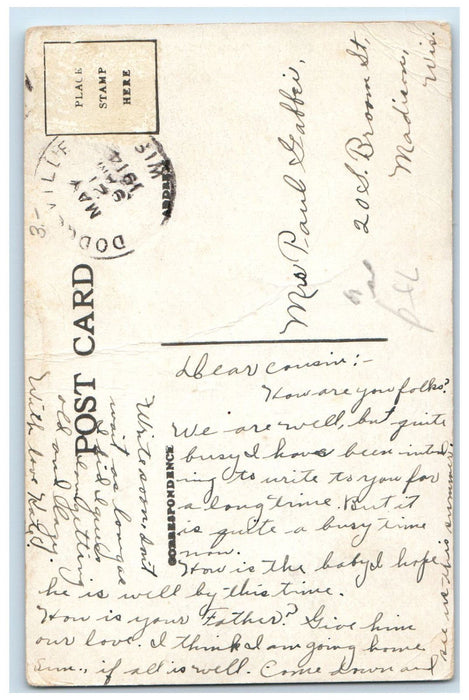 PLACE
STAMP
HERE
DODGEVILLE
MAY
21
AM
1914
WIS
3-
POST CARD
ADDRESS
CORRESPONDENCE
Mrs Paul
20 S. Broom St,
Madison,
Wis.
Dear cousin:-
How are you folks?
We are well, but quite
busy I have been intend
ing to write to you for
a long time. But it
is quite a busy time
now.
How is the baby I hope
he is well by this time.
How is your Father? Give him
our love. I think I am going home
Sun., if all is well. Come down and
see us this summer.
Write soon don't
wait as long as
I did I guess
I am getting
old and
With love